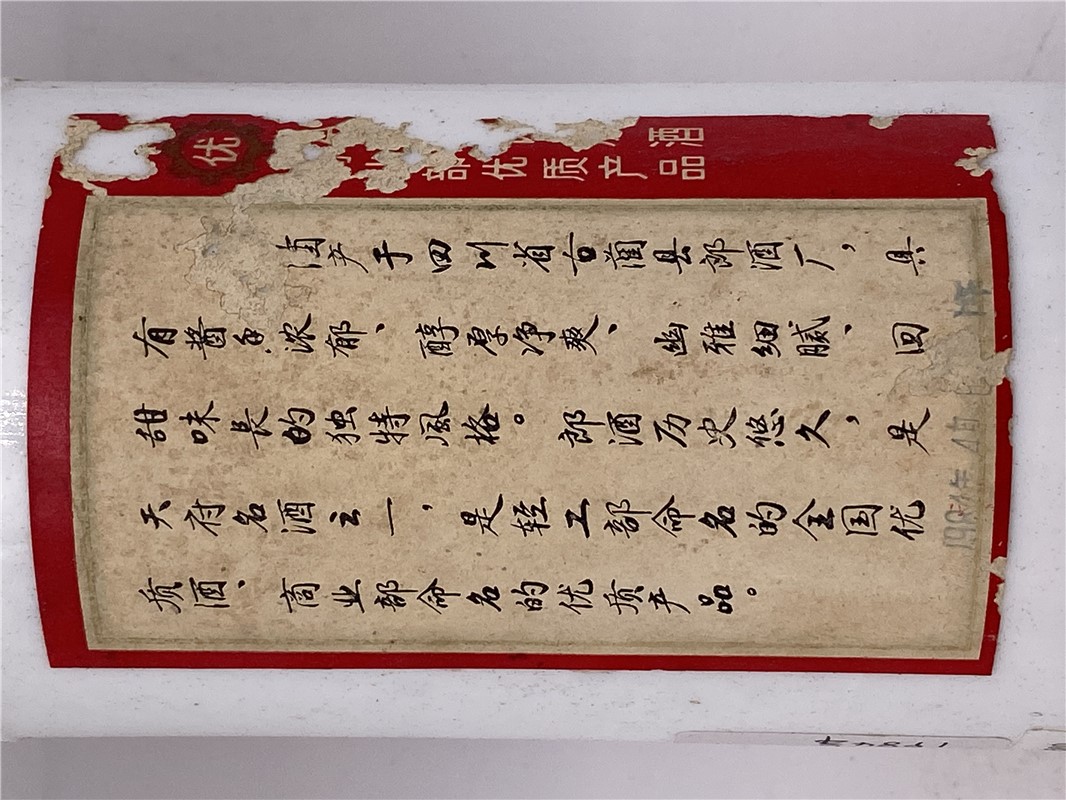 优
酒
部优质产品
酒产于四川省古蔺县郎酒厂，具
有酱香浓郁、醇厚净爽、幽雅细腻、回
甜味長的独特風格。郎酒历史悠久，是
天府名酒之一，是轻工部命名的全国优
质酒、商业部命名的优质产品。